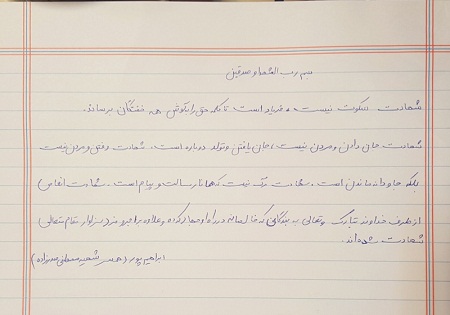 بسم رب الشهدا و صدیقین
شهادت سکوت نیست، فریاد است تا که حق را بگوش همه خفتگان برساند.
شهادت جان دادن و مردن نیست، جان یافتن و تولد دوباره است. شهادت رفتن و مردن نیست
بلکه جاودانه ماندن است. شهادت ترک نیست که رسالت و پیام است. شهادت انعامی
از طرف خداوند تبارک و تعالی به بندگانی که خالصانه در راه او جهاد کرده و علاوه بر اجر و مزد سزاوار مقام متعالی
شهادت شده‌اند.
ابراهیم پور (همسر شهید مصطفی)